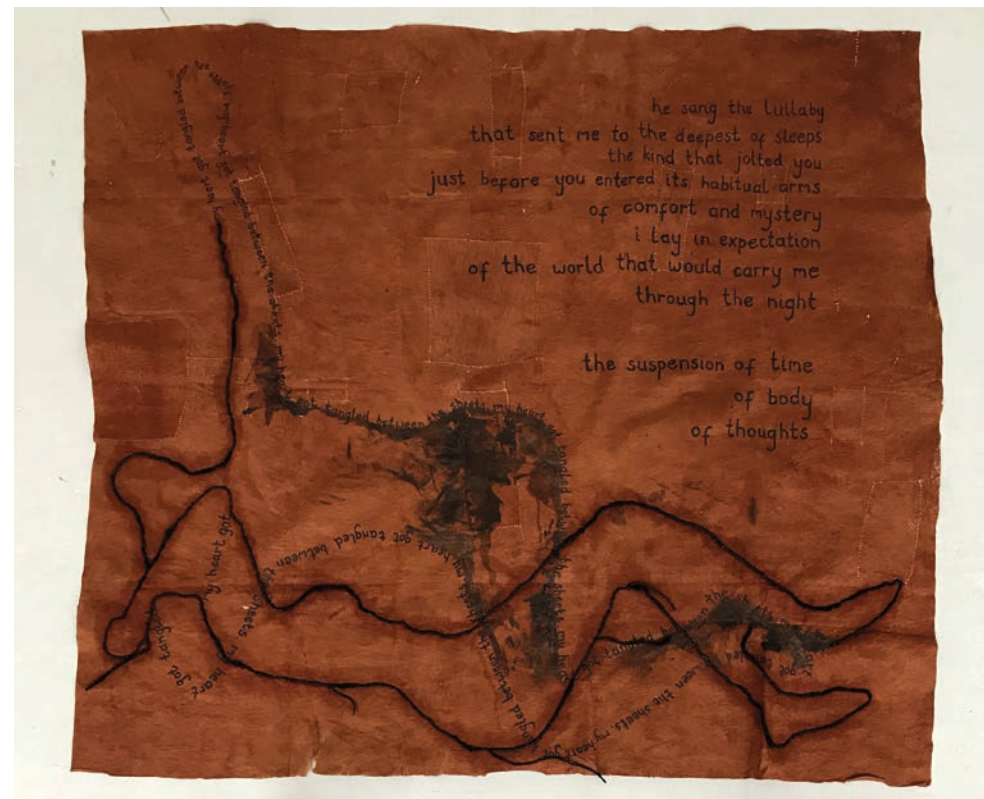 he sang the lullaby
that sent me to the deepest of sleeps
the kind that jolted you
just before you entered its habitual arms
of comfort and mystery
i lay in expectation
of the world that would carry me
through the night
the suspension of time
of body
of thoughts
my heart got tangled between the sheets my heart got tangled between the sheets my heart got tangled between the sheets my heart got tangled between the sheets my heart got tangled between the sheets my heart got
my heart got tangled between the sheets my heart got tangled
tangled between the sheets
tangled between the sheets my heart got